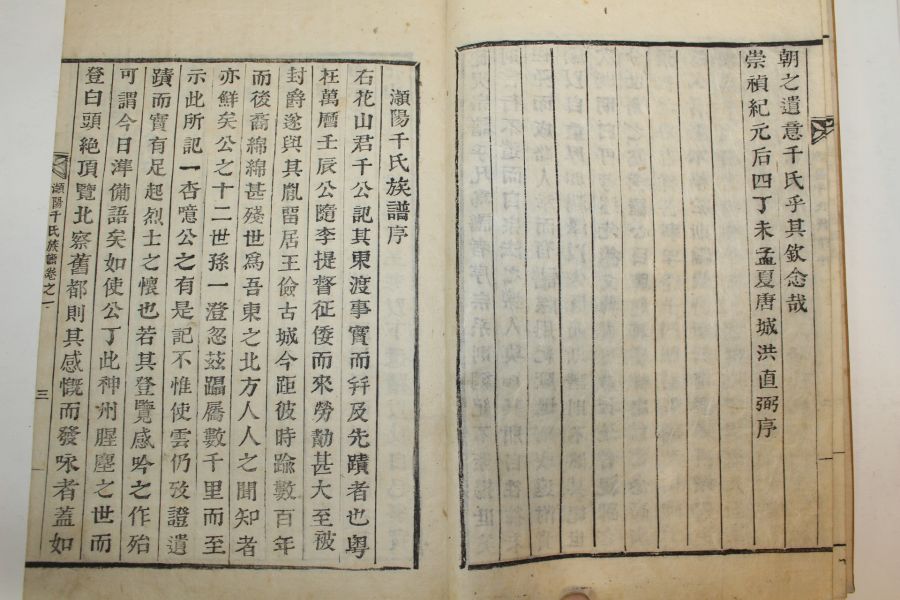 朝之遺意千氏乎其欽念哉
崇禎紀元后四丁未孟夏唐城洪直弼序
瀕陽千氏族譜序
右花山君千公記其東渡事實而幷及先蹟者也粤
在萬曆壬辰公隨李提督征倭而來勞勩甚大至被
封爵遂與其胤留居王儉古城今距彼時踰數百年
而後裔綿綿甚殘世爲吾東之北方人人之聞知者
亦鮮矣公之十二世孫一澄忽玆躡屩數千里而至
示此所記一杏噫公之有是記不惟使雲仍攷證遺
蹟而實有足起烈士之懷也若其登覽感吟之作殆
可謂今日準備語矣如使公丁此神州腥塵之世而
登白頭絶頂覽北察舊都則其感慨而發咏者蓋如
瀕陽千氏族譜卷之一
三